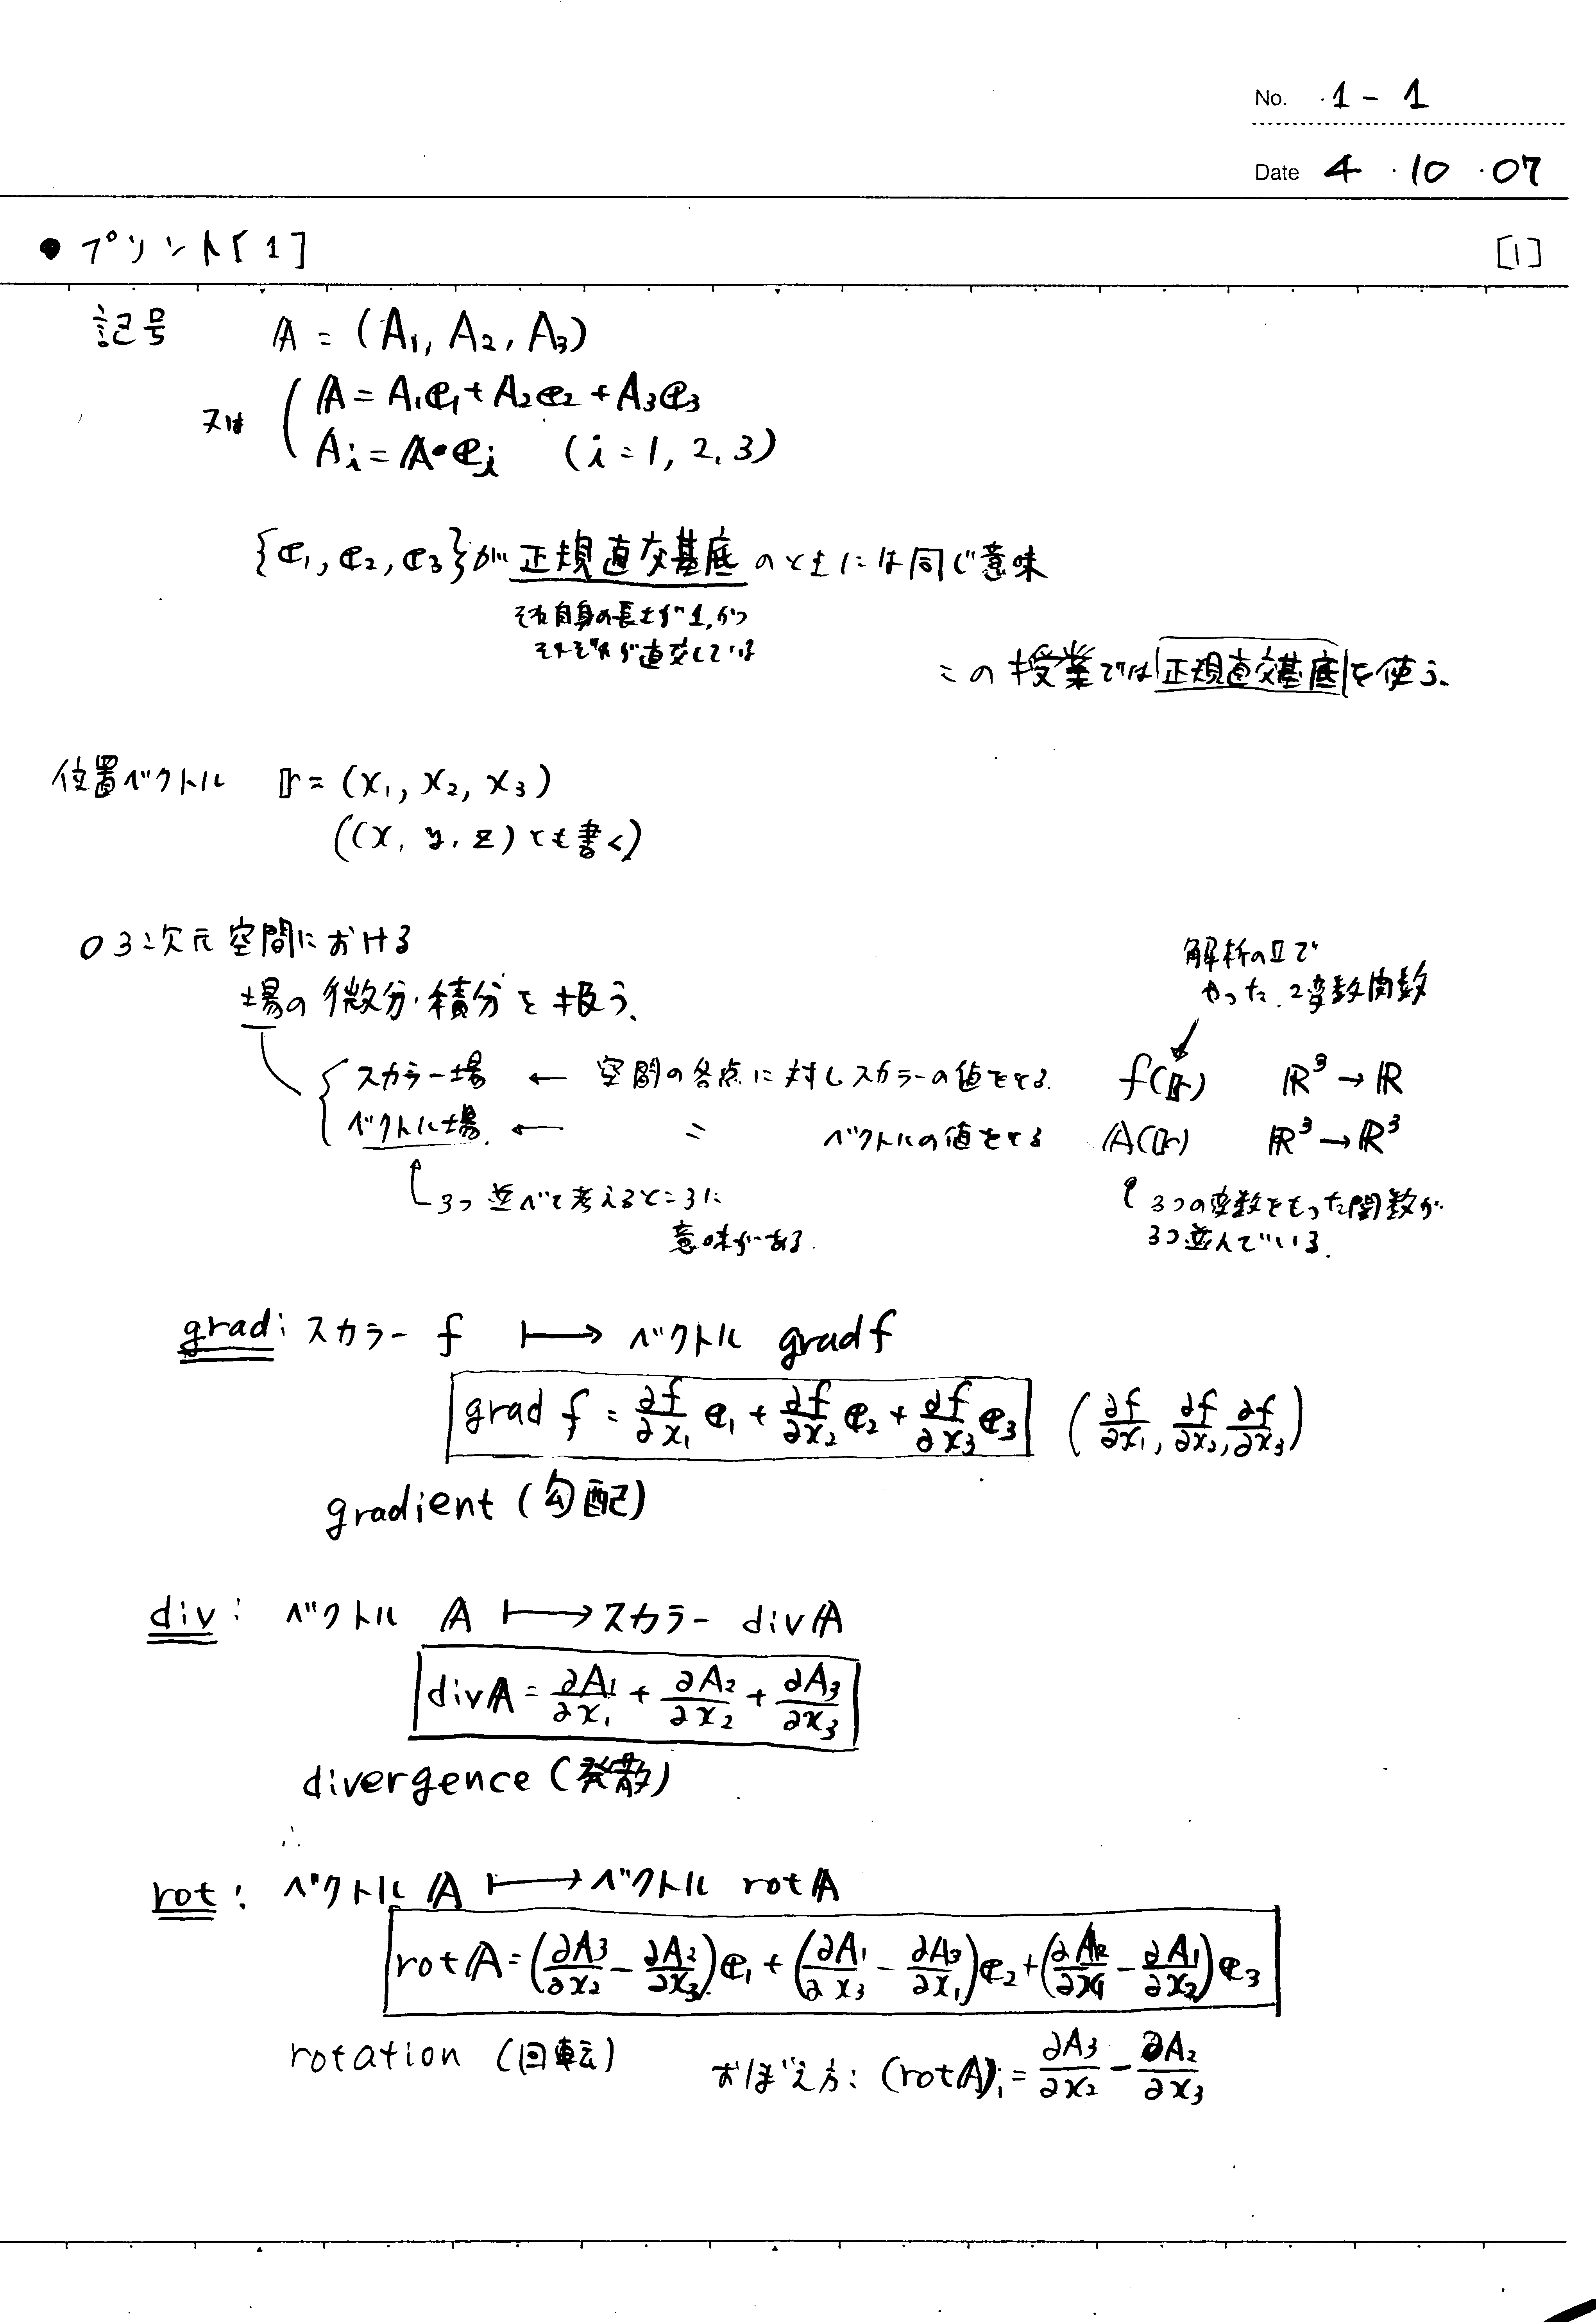 No. 1-1
Date 4・10・07
● プリント[1] [1]
記号 𝔸 = (A₁, A₂, A₃)
又は ( 𝔸 = A₁𝕖₁ + A₂𝕖₂ + A₃𝕖₃
Aᵢ = 𝔸・𝕖ᵢ (i = 1, 2, 3)
{𝕖₁, 𝕖₂, 𝕖₃}が正規直交基底のときには同じ意味
それ自身の長さが1,かつ
それぞれが直交している
この授業では正規直交基底を使う。
位置ベクトル 𝕣 = (x₁, x₂, x₃)
((x, y, z)とも書く)
○3次元空間における
場の微分・積分を扱う。
解析のIIで
やった、2変数関数
スカラー場 ← 空間の各点に対しスカラーの値をとる. f(𝕣) ℝ³ → ℝ
ベクトル場. ← 〃 ベクトルの値をとる 𝔸(𝕣) ℝ³ → ℝ³
3つ並べて考えるところに
意味がある.
3つの変数をもった関数が
3つ並んでいる.
grad: スカラー f ⟼ ベクトル grad f
grad f = ∂f/∂x₁ 𝕖₁ + ∂f/∂x₂ 𝕖₂ + ∂f/∂x₃ 𝕖₃ (∂f/∂x₁, ∂f/∂x₂, ∂f/∂x₃)
gradient (勾配)
div: ベクトル 𝔸 ⟼ スカラー div𝔸
div𝔸 = ∂A₁/∂x₁ + ∂A₂/∂x₂ + ∂A₃/∂x₃
divergence (発散)
rot: ベクトル 𝔸 ⟼ ベクトル rot𝔸
rot𝔸 = (∂A₃/∂x₂ - ∂A₂/∂x₃)𝕖₁ + (∂A₁/∂x₃ - ∂A₃/∂x₁)𝕖₂ + (∂A₂/∂x₁ - ∂A₁/∂x₂)𝕖₃
rotation (回転)
おぼえ方: (rot𝔸)₁ = ∂A₃/∂x₂ - ∂A₂/∂x₃